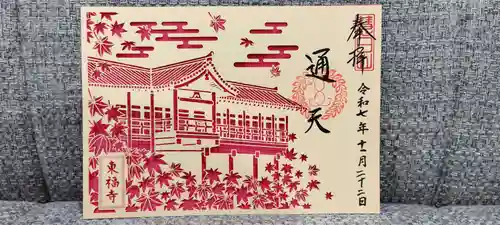 奉拝
通天
令和七年十一月二十二日
東福寺